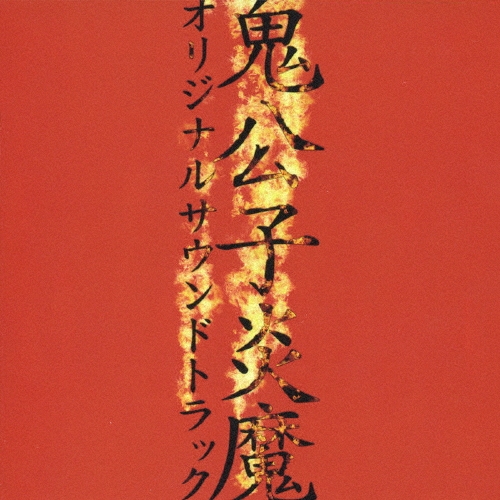 鬼公子炎魔
オリジナルサウンドトラック